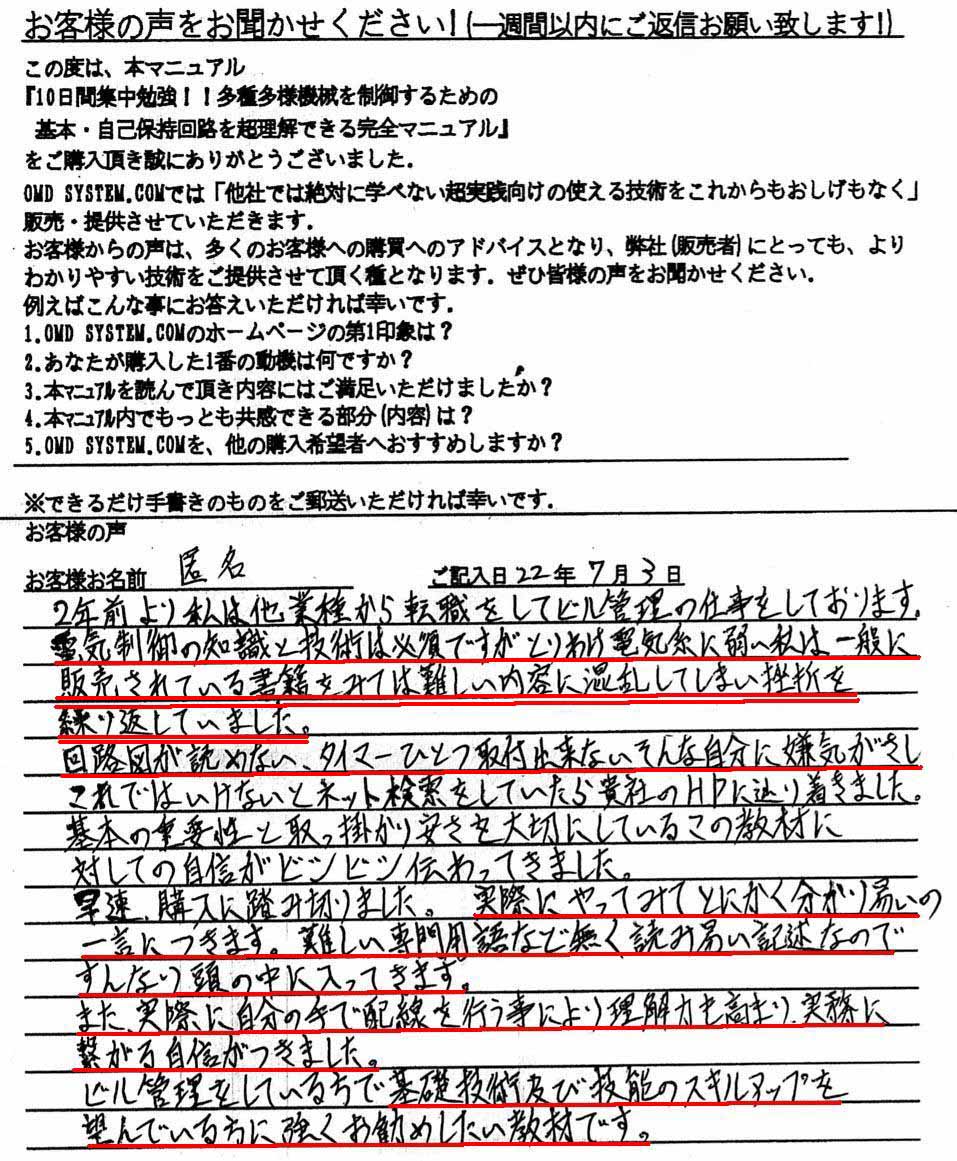 お客様の声をお聞かせください!(一週間以内にご返信お願い致します!)
この度は、本マニュアル
『10日間集中勉強!!多種多様機械を制御するための
基本・自己保持回路を超理解できる完全マニュアル』
をご購入頂き誠にありがとうございました.
OMD SYSTEM.COMでは「他社では絶対に学べない超実践向けの使える技術をこれからもおしげもなく」
販売・提供させていただきます.
お客様からの声は、多くのお客様への購買へのアドバイスとなり、弊社(販売者)にとっても、より
わかりやすい技術をご提供させて頂く種となります. ぜひ皆様の声をお聞かせください.
例えばこんな事にお答えいただければ幸いです.
1.OMD SYSTEM.COMのホームページの第1印象は?
2.あなたが購入した1番の動機は何ですか?
3.本マニュアルを読んで頂き内容にはご満足いただけましたか?
4.本マニュアル内でもっとも共感できる部分(内容)は?
5.OMD SYSTEM.COMを、他の購入希望者へおすすめしますか?
※できるだけ手書きのものをご郵送いただければ幸いです.
お客様の声
お客様お名前 匿名 ご記入日 22年 7月 3日
2年前より私は他業種から転職をしてビル管理の仕事をしております。
電気制御の知識と技術は必須ですがとりわけ電気系に弱い私は一般に
販売されている書籍をみては難しい内容に混乱してしまい挫折を
繰り返していました。
回路図が読めない、タイマーひとつ取付出来ないそんな自分に嫌気がさし
これではいけないとネット検索をしていたら貴社のHPに辿り着きました。
基本の重要性と取っ掛かり安さを大切にしているこの教材に
対しての自信がビンビン伝わってきました。
早速、購入に踏み切りました。 実際にやってみてとにかく分かり易いの
一言につきます。難しい専門用語など無く読み易い記述なので
すんなり頭の中に入ってきます。
また、実際に自分の手で配線を行う事により理解力も高まり、実務に
繋がる自信がつきました。
ビル管理をしている方で基礎技術及び技能のスキルアップを
望んでいる方に強くお勧めしたい教材です。